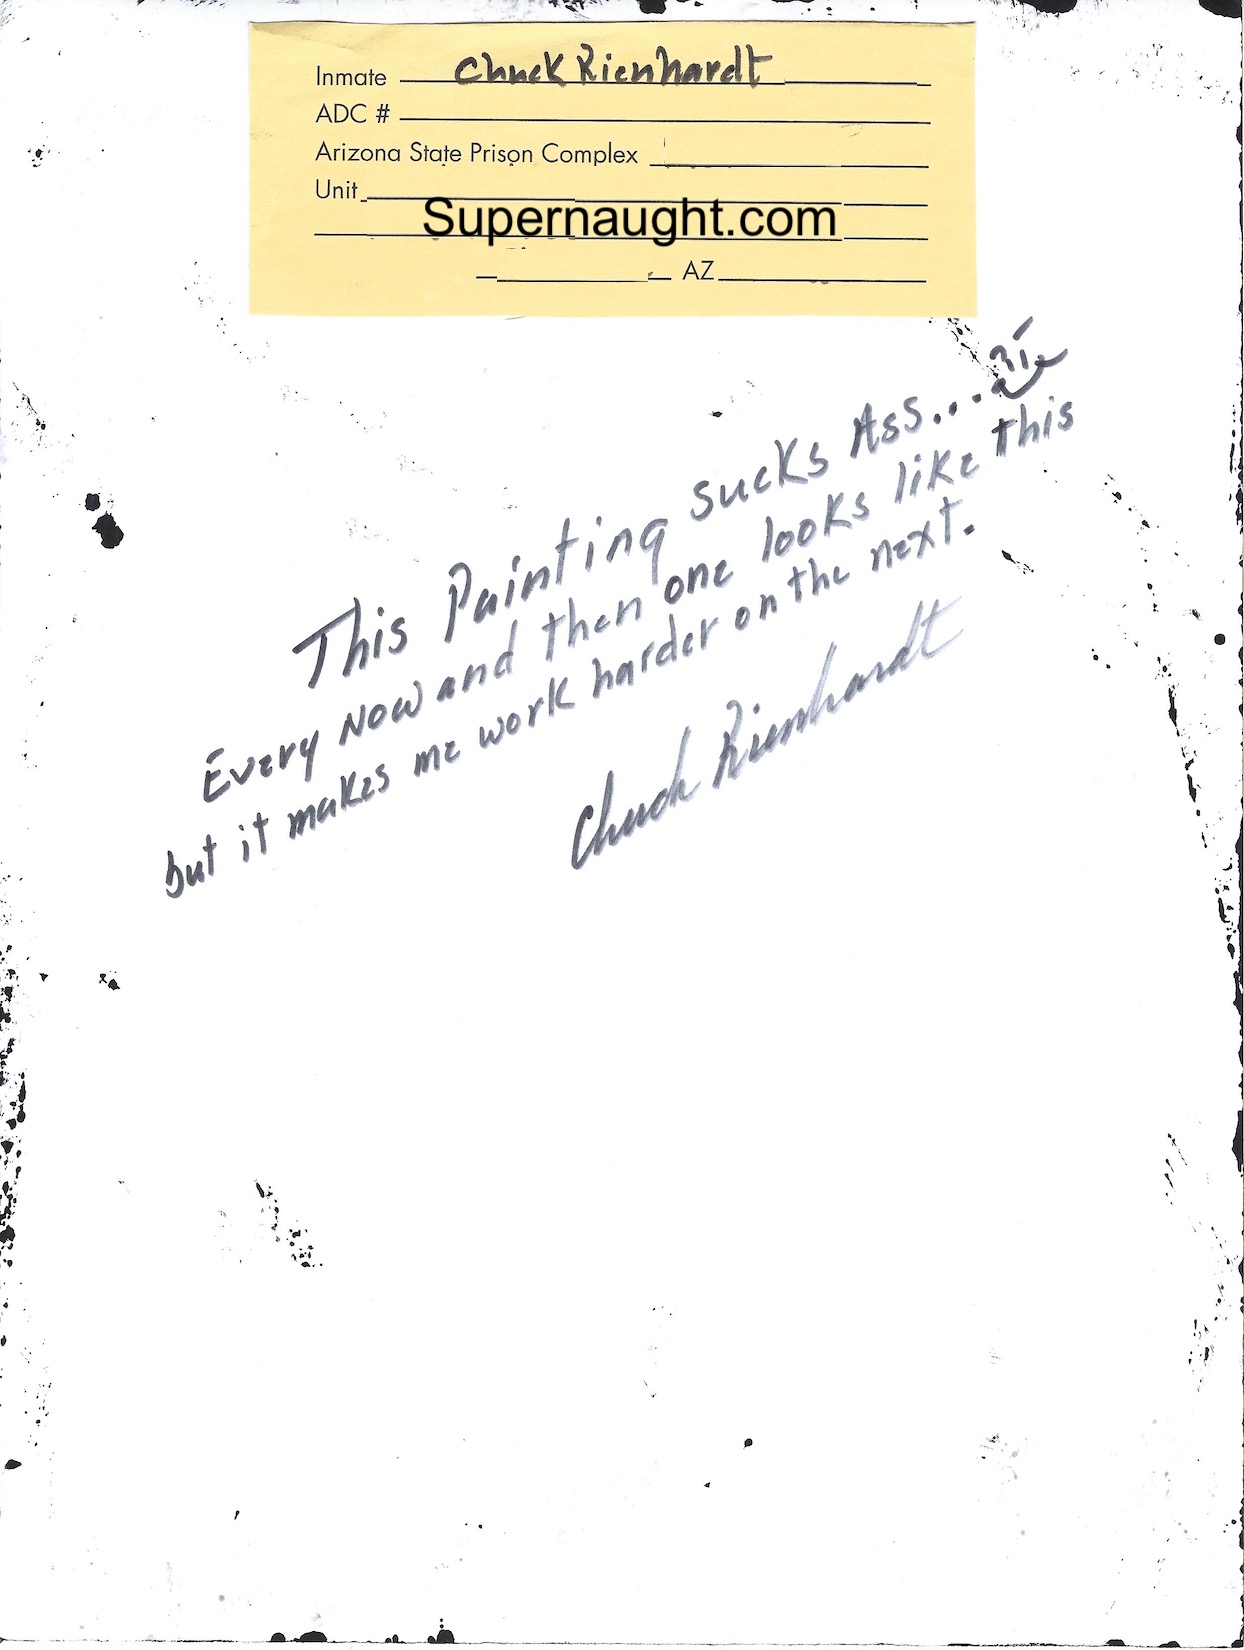 Inmate Chuck Rienhardt
ADC #
Arizona State Prison Complex
Unit
Supernaught.com
AZ
This Painting sucks Ass...
Every Now and then one looks like this
but it makes me work harder on the next.
Chuck Rienhardt